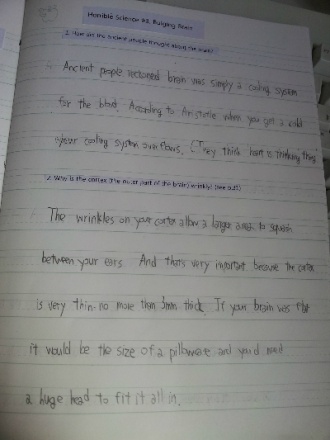 Horrible Science #3. Bulging Brain
1. How did the ancient people thought about the brain?
Ancient people reckoned brain was simply a cooling system
for the blood. According to Aristotle when you get a cold
your cooling system overflows. (They think heart is thinking thing)
2. Why is the cortex (the outer part of the brain) wrinkly?
The wrinkles on your cortex allow a larger area to squash
between your ears. And thats very important because the cortex
is very thin - no more than 3mm thick. If your brain was flat
it would be the size of a pillowcase and you'd need
a huge head to fit it all in.